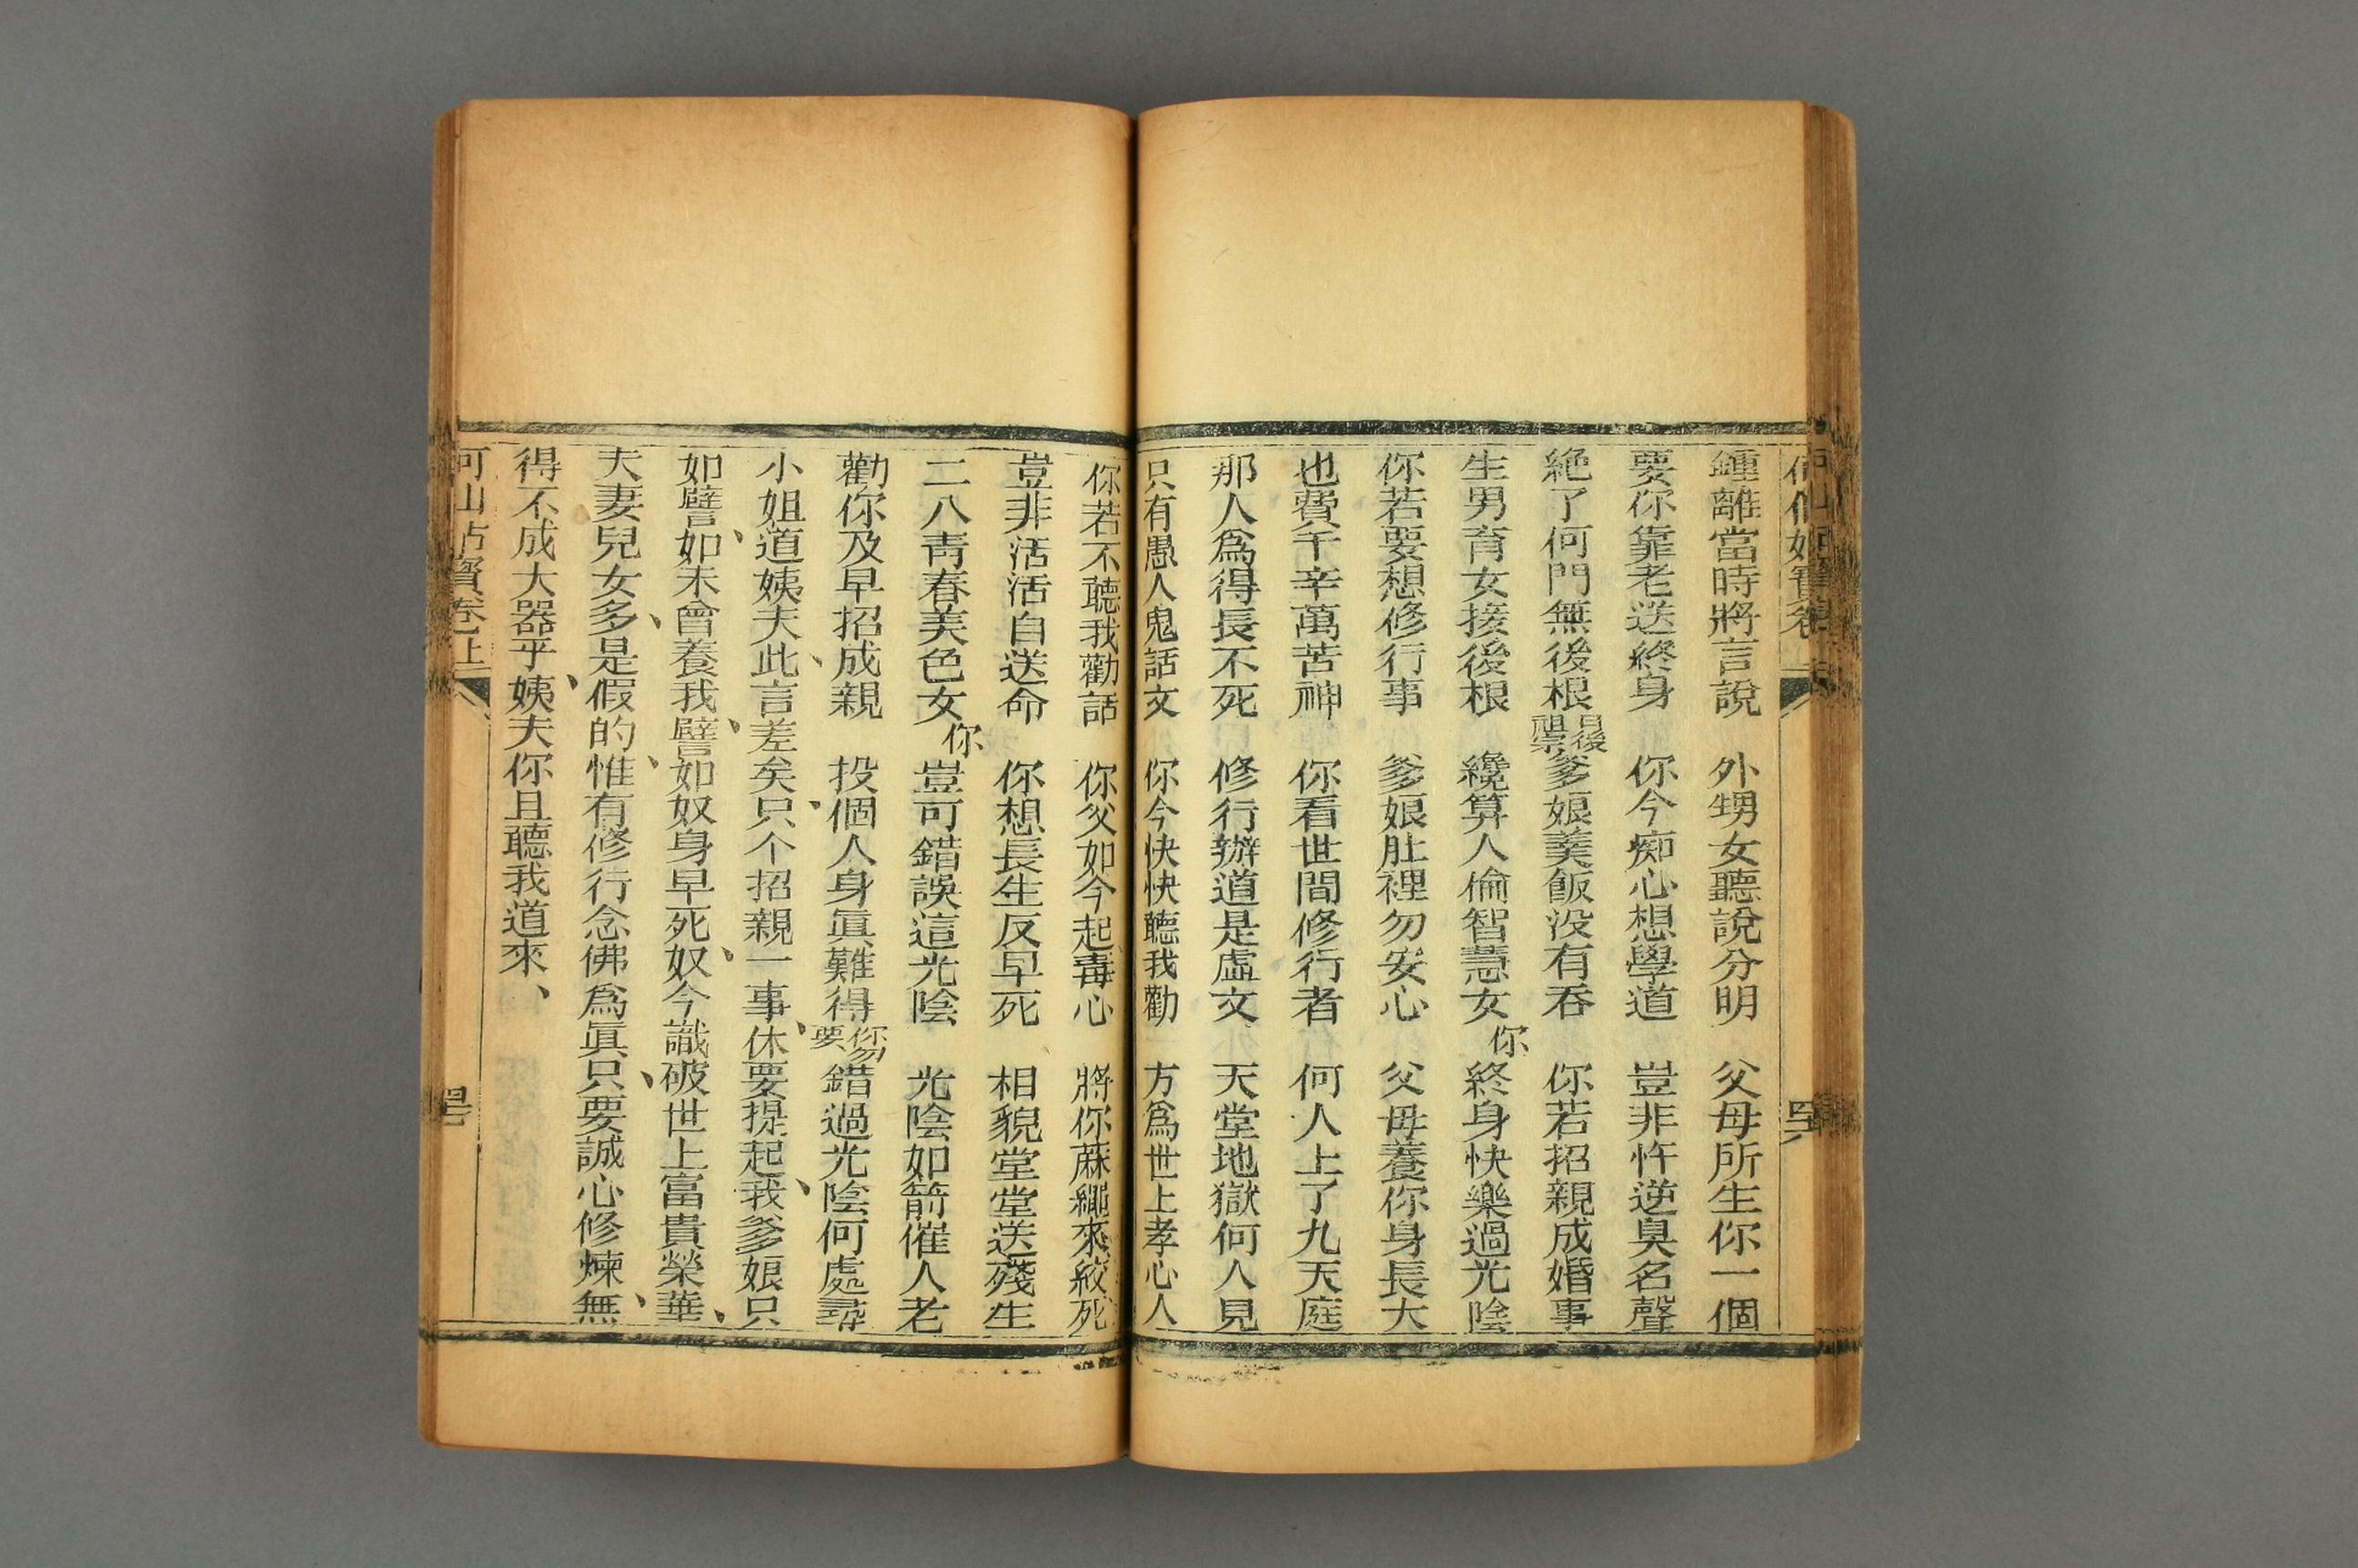 鍾離當時將言說　外甥女聽說分明　父母所生你一個
要你靠老送終身　你今痴心想學道　豈非忤逆臭名聲
絶了何門無後根　日後祖宗爹娘羹飯没有吞　你若招親成婚事
生男育女接後根　纔算人倫智慧女　你終身快樂過光陰
你若要想修行事　爹娘肚裡勿安心　父母養你身長大
也費千辛萬苦神　你看世間修行者　何人上了九天庭
那人為得長不死　修行辦道是虛文　天堂地獄何人見
只有愚人鬼話文　你今快快聽我勸　方為世上孝心人
你若不聽我勸話　你父如今起毒心　將你蔴繩來絞死
豈非活活自送命　你想長生反早死　相貌堂堂送殘生
二八青春美色女　你豈可錯誤這光陰　光陰如箭催人老
勸你及早招成親　投個人身眞難得　你勿要錯過光陰何處尋
小姐道姨夫此言差矣、只个招親一事、休要提起、我爹娘只
如譬如未曾養我、譬如奴身早死、奴今識破世上富貴榮華、
夫妻兒女、多是假的、惟有修行念佛爲眞、只要誠心修煉、無
得不成大器乎、姨夫你且聽我道來、
卷上